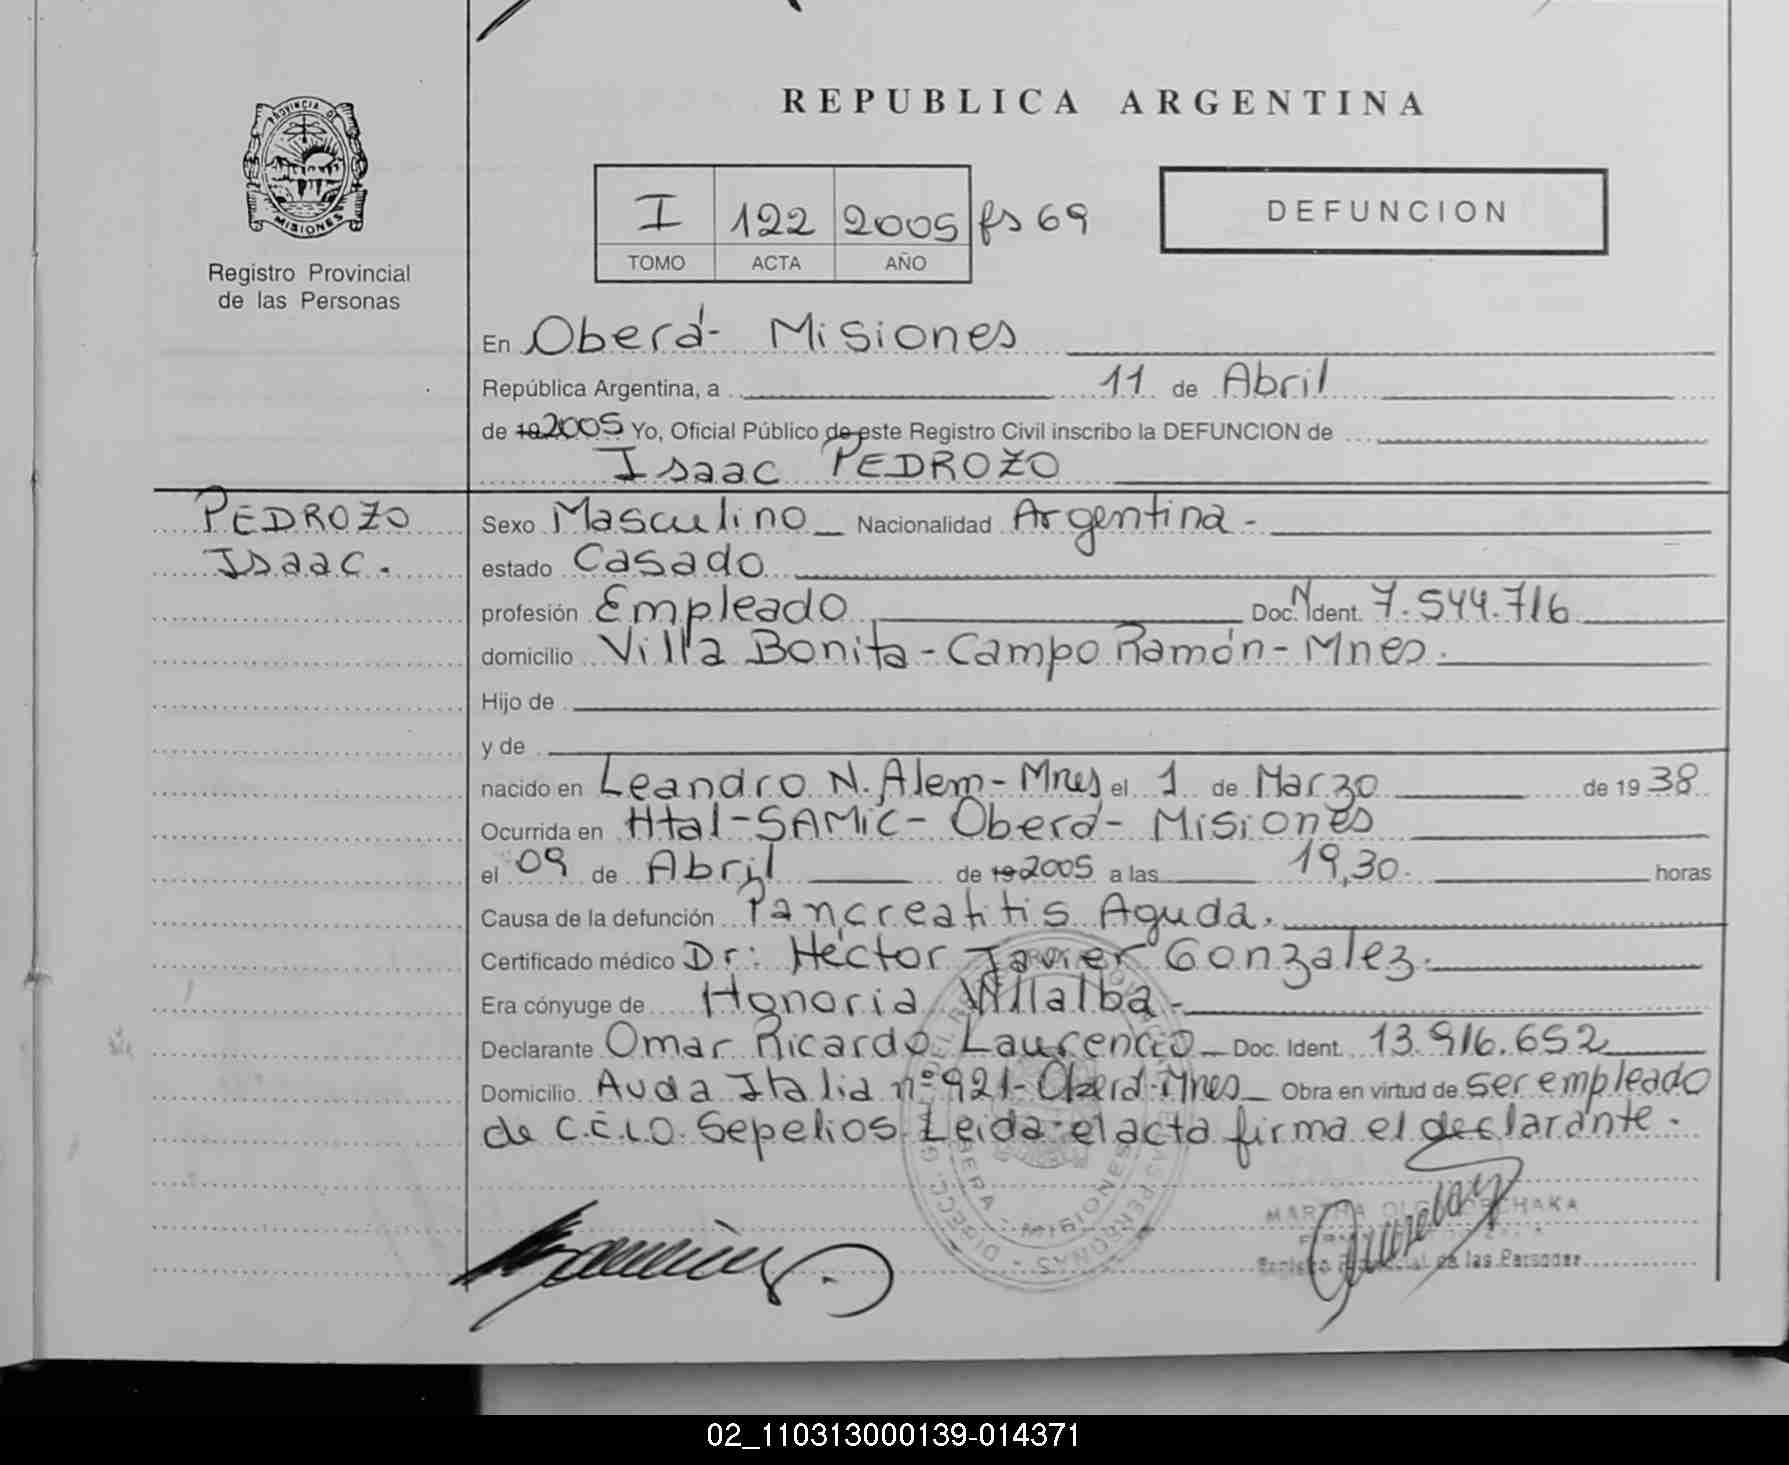 REPUBLICA ARGENTINA
PROVINCIA DE
MISIONES
Registro Provincial
de las Personas
I 122 2005 fs 69
TOMO ACTA AÑO
DEFUNCION
En Oberá- Misiones
República Argentina, a 11 de Abril
de 19 2005 Yo, Oficial Público de este Registro Civil inscribo la DEFUNCION de
Isaac PEDROZO
PEDROZO
Isaac.
Sexo Masculino Nacionalidad Argentina -
estado Casado
profesión Empleado Doc. N Ident. 7.544.716
domicilio Villa Bonita - Campo Ramón - Mnes.
Hijo de
y de
nacido en Leandro N. Alem - Mnes el 1 de Marzo de 19 38
Ocurrida en Htal - SAMIC - Oberá - Misiones
el 09 de Abril de 19 2005 a las 19,30. horas
Causa de la defunción Pancreatitis Aguda.
Certificado médico Dr: Héctor Javier Gonzalez.
Era cónyuge de Honoria Villalba -
Declarante Omar Ricardo Laurencio Doc. Ident. 13.916.652
Domicilio Avda Italia nº 921 - Oberá - Mnes Obra en virtud de ser empleado
de C.E.L.O. Sepelios. Leida el acta firma el declarante.
MARTHA
Registro de las Personas
02_110313000139-014371